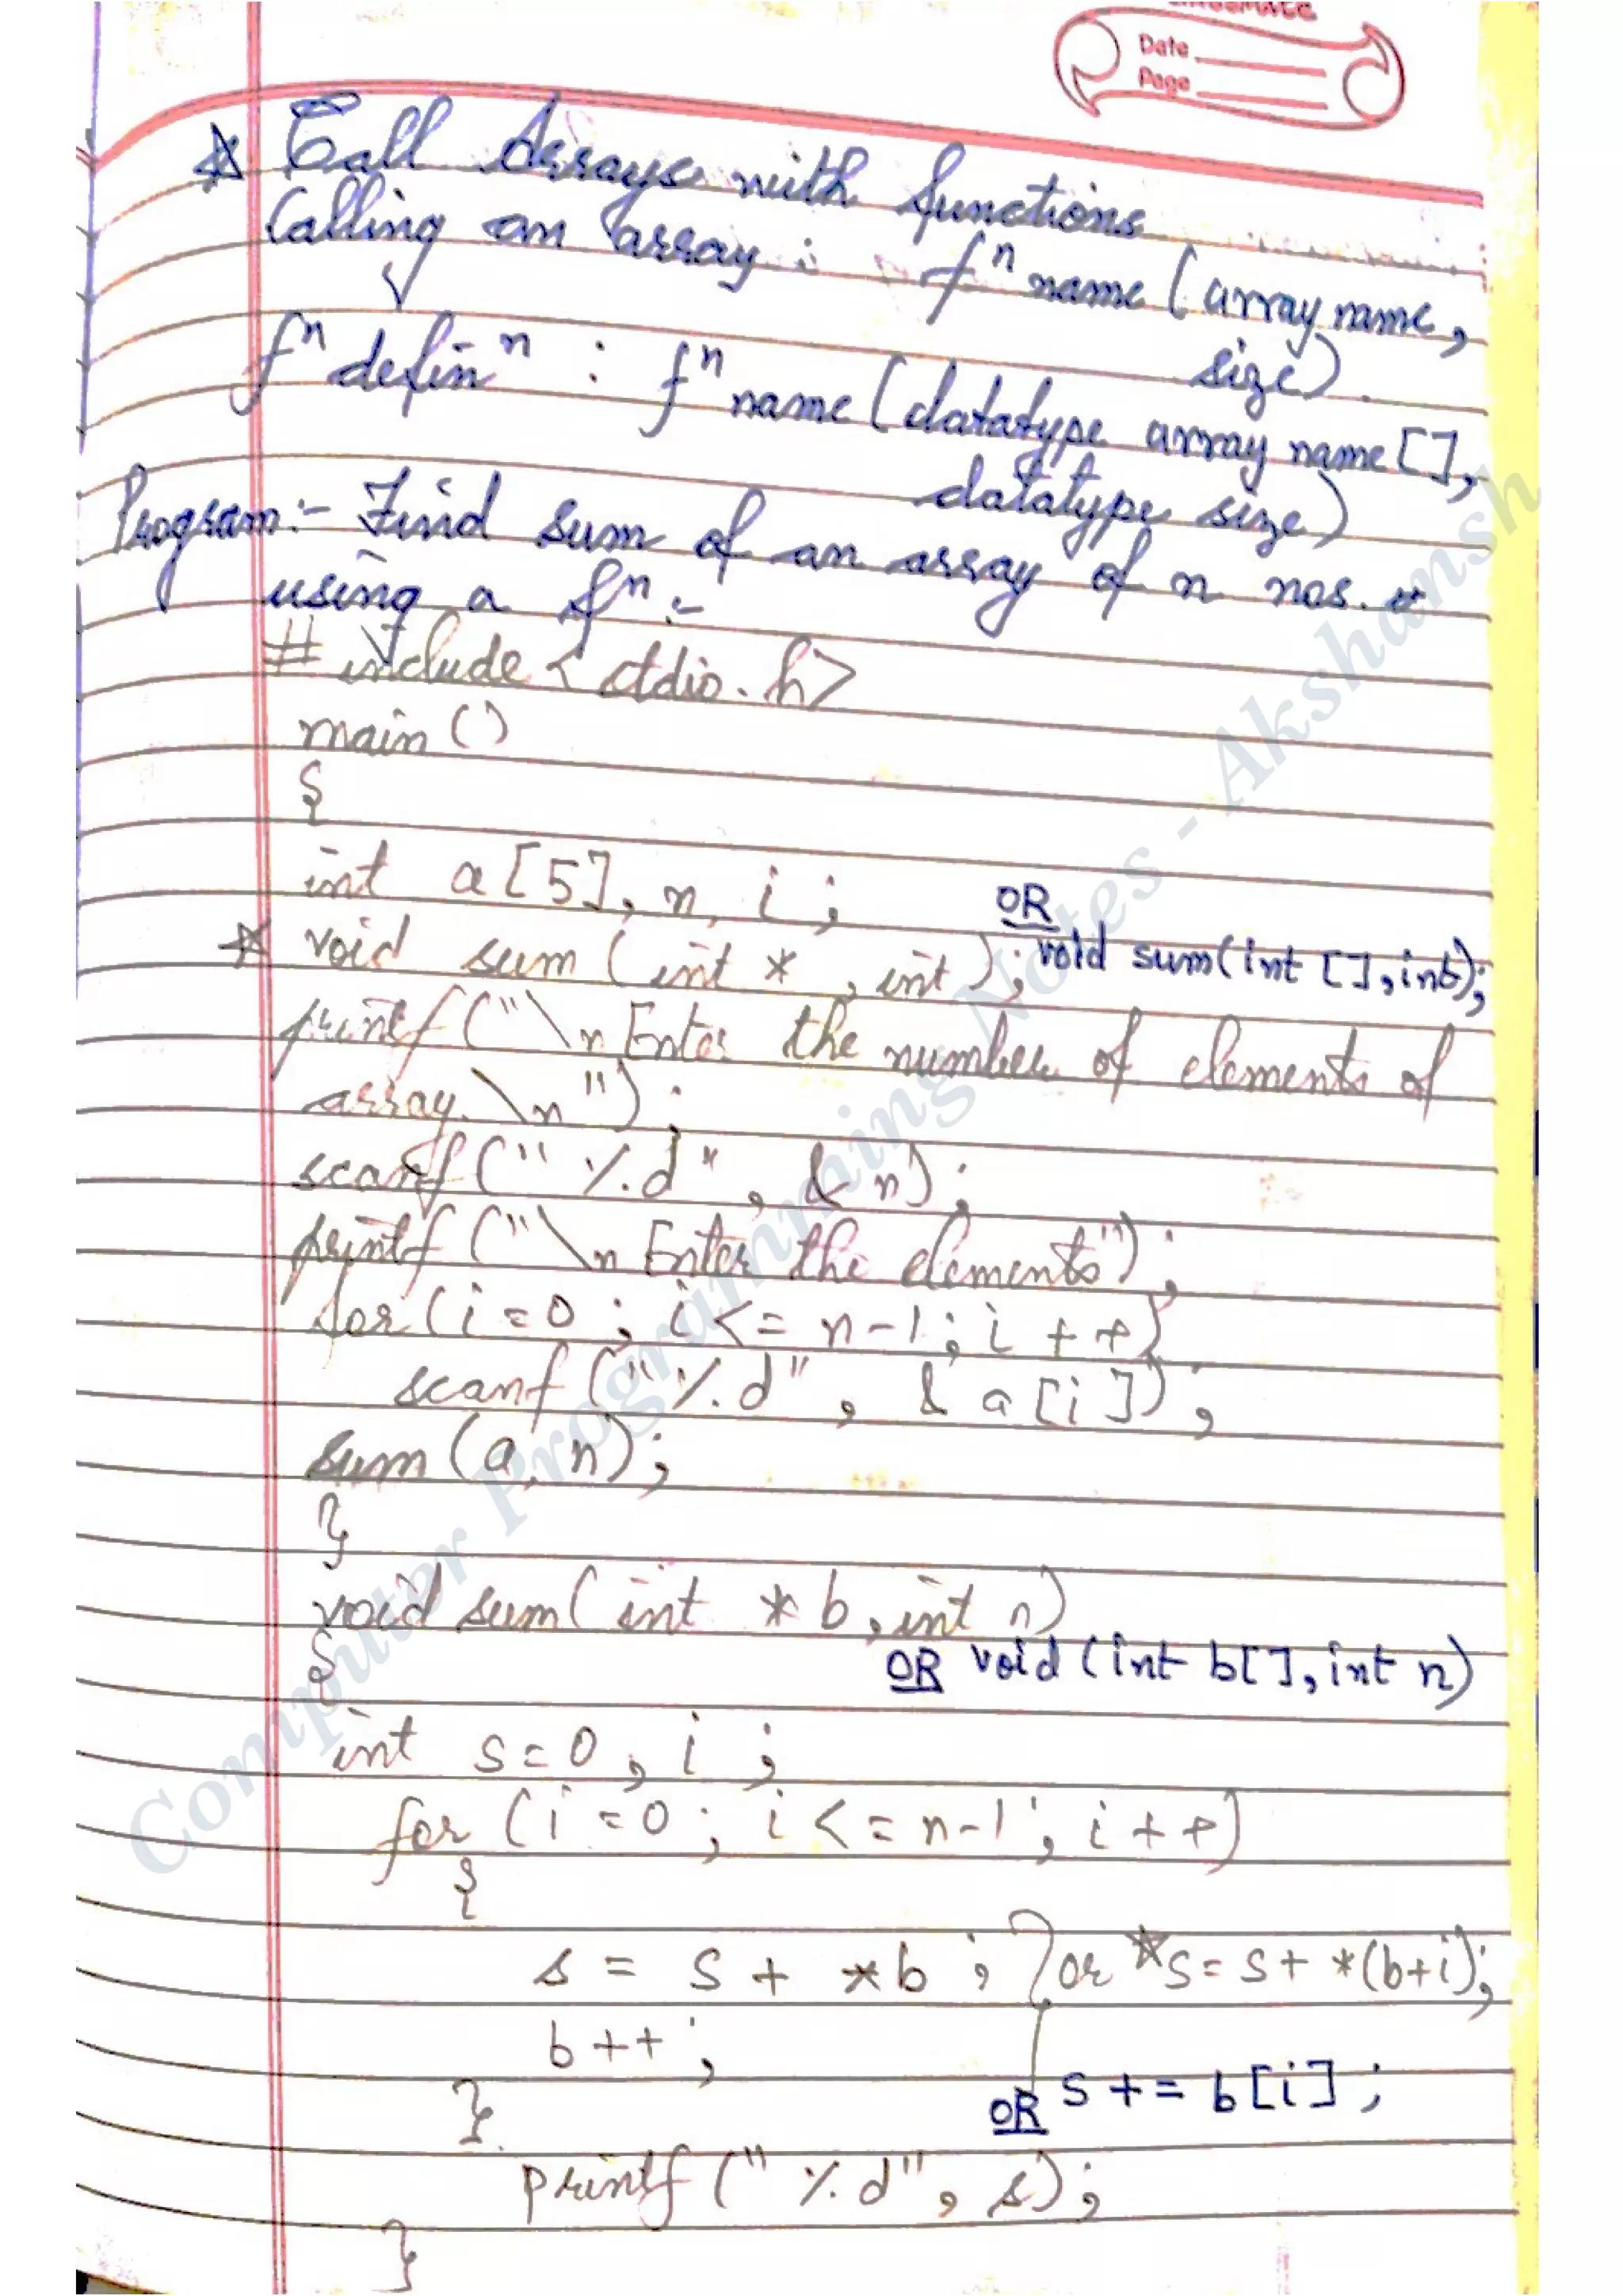 Date
Page
☆ Call Arrays with functions
Calling an array : fⁿ name (array name,
size).
fⁿ definⁿ : fⁿ name (datatype array name [],
datatype size)
Program:- Find sum of an array of n nos.
using a fⁿ :-
# include < stdio.h>
main ()
{
int a [5], n, i ;
OR
☆ void sum (int * , int ); void sum(int [], int);
printf ("\n Enter the number of elements of
array. \n ") ;
scanf (" %d" , & n) ;
printf ("\n Enter the elements") ;
for (i = 0 ; i <= n-1 ; i ++)
scanf ("%d" , & a [i ]) ;
sum (a, n) ;
}
void sum ( int * b , int n)
{ OR void (int b[], int n)
int s = 0 , i ;
for (i = 0 ; i <= n-1 ; i ++)
{
s = s + *b ; or ☆ s = s + *(b+i);
b ++ ;
} OR s += b [i] ;
printf (" %d" , s) ;
}
Computer Programming Notes - Akshansh